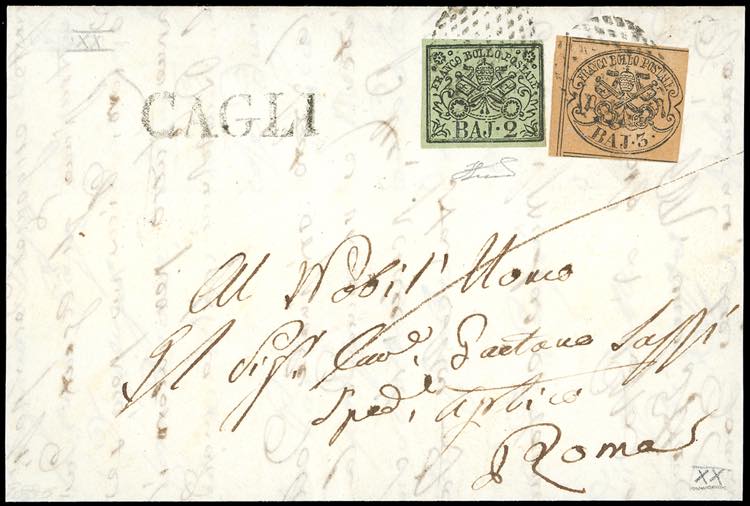 XX
FRANCO BOLLO POSTALE
BAJ·2
FRANCO BOLLO POSTALE
BAJ·3·
CAGLI
Al Nobil' Uomo
Il Sigr. Cave. Gaetano Saffi
Sped.e Aplico
Roma
XX